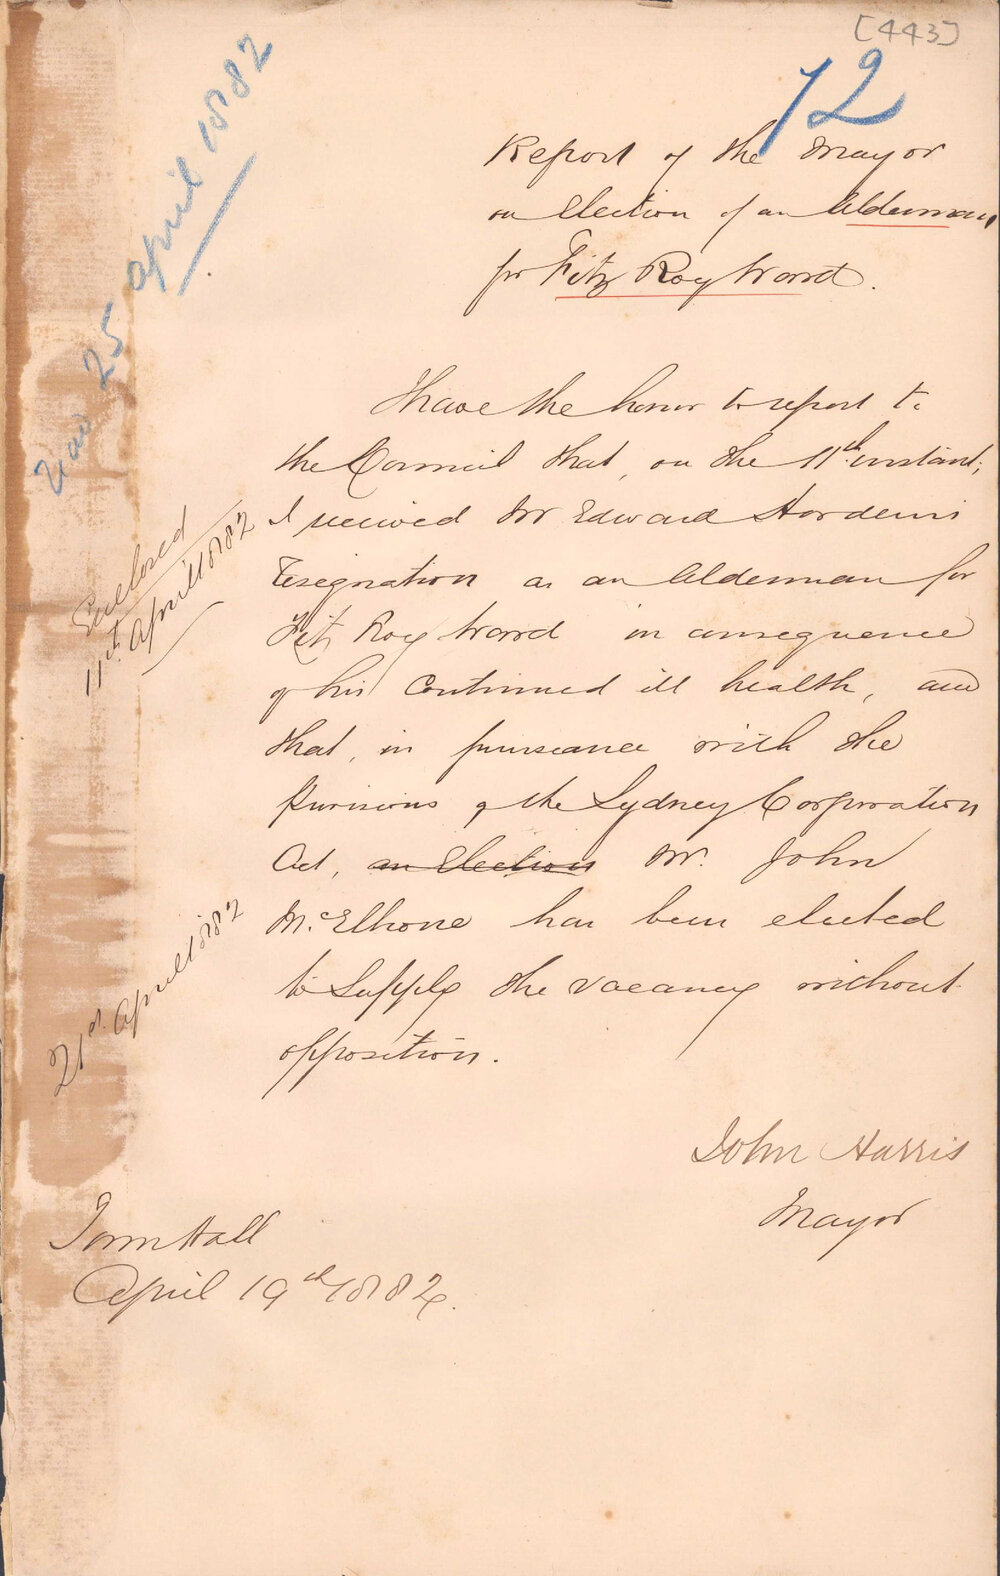 [443]
12
Report of the Mayor
on Election of an Alderman
for Fitz Roy Ward.
I have the honor to report to
the Council that, on the 11th. instant,
I received Mr Edward Hordern's
resignation as an Alderman for
Fitz Roy Ward in consequence
of his continued ill health, and
that, in pursuance with the
provisions of the Sydney Corporation
Act, an Election Mr. John
McElhone has been elected
to supply the vacancy without
opposition.
John Harris
Mayor
Town Hall
April 19th 1882.
25 April 1882
Enclosed
11th. April 1882
21st. April 1882